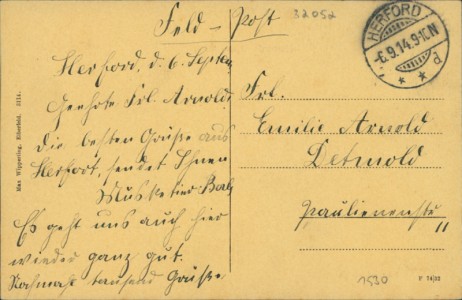 Feld – Post
32052
HERFORD
-6.9.14.9-10N
* * d
Herford, d. 6. Septem
Geehrte Frl. Arnold!
Die besten Grüße aus
Herfort, sendet Ihnen
Musketier
Es geht uns auch hier
wieder ganz gut.
Nochmals tausend Grüße
Frl.
Emilie Arnold
Detmold
Paulinenstr
11
1530
P 74/33
Max Wipperling, Elberfeld. 3114.